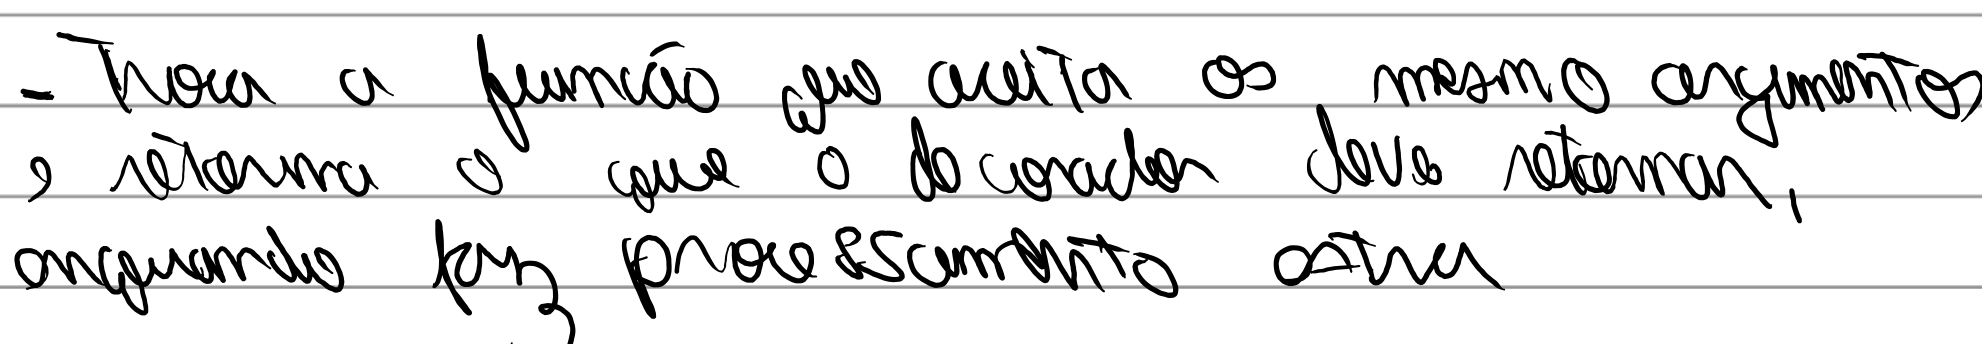 - Troca a função que aceita os mesmo argumentos
, retorna o que o decorador deve retornar,
enquando faz processamento extra